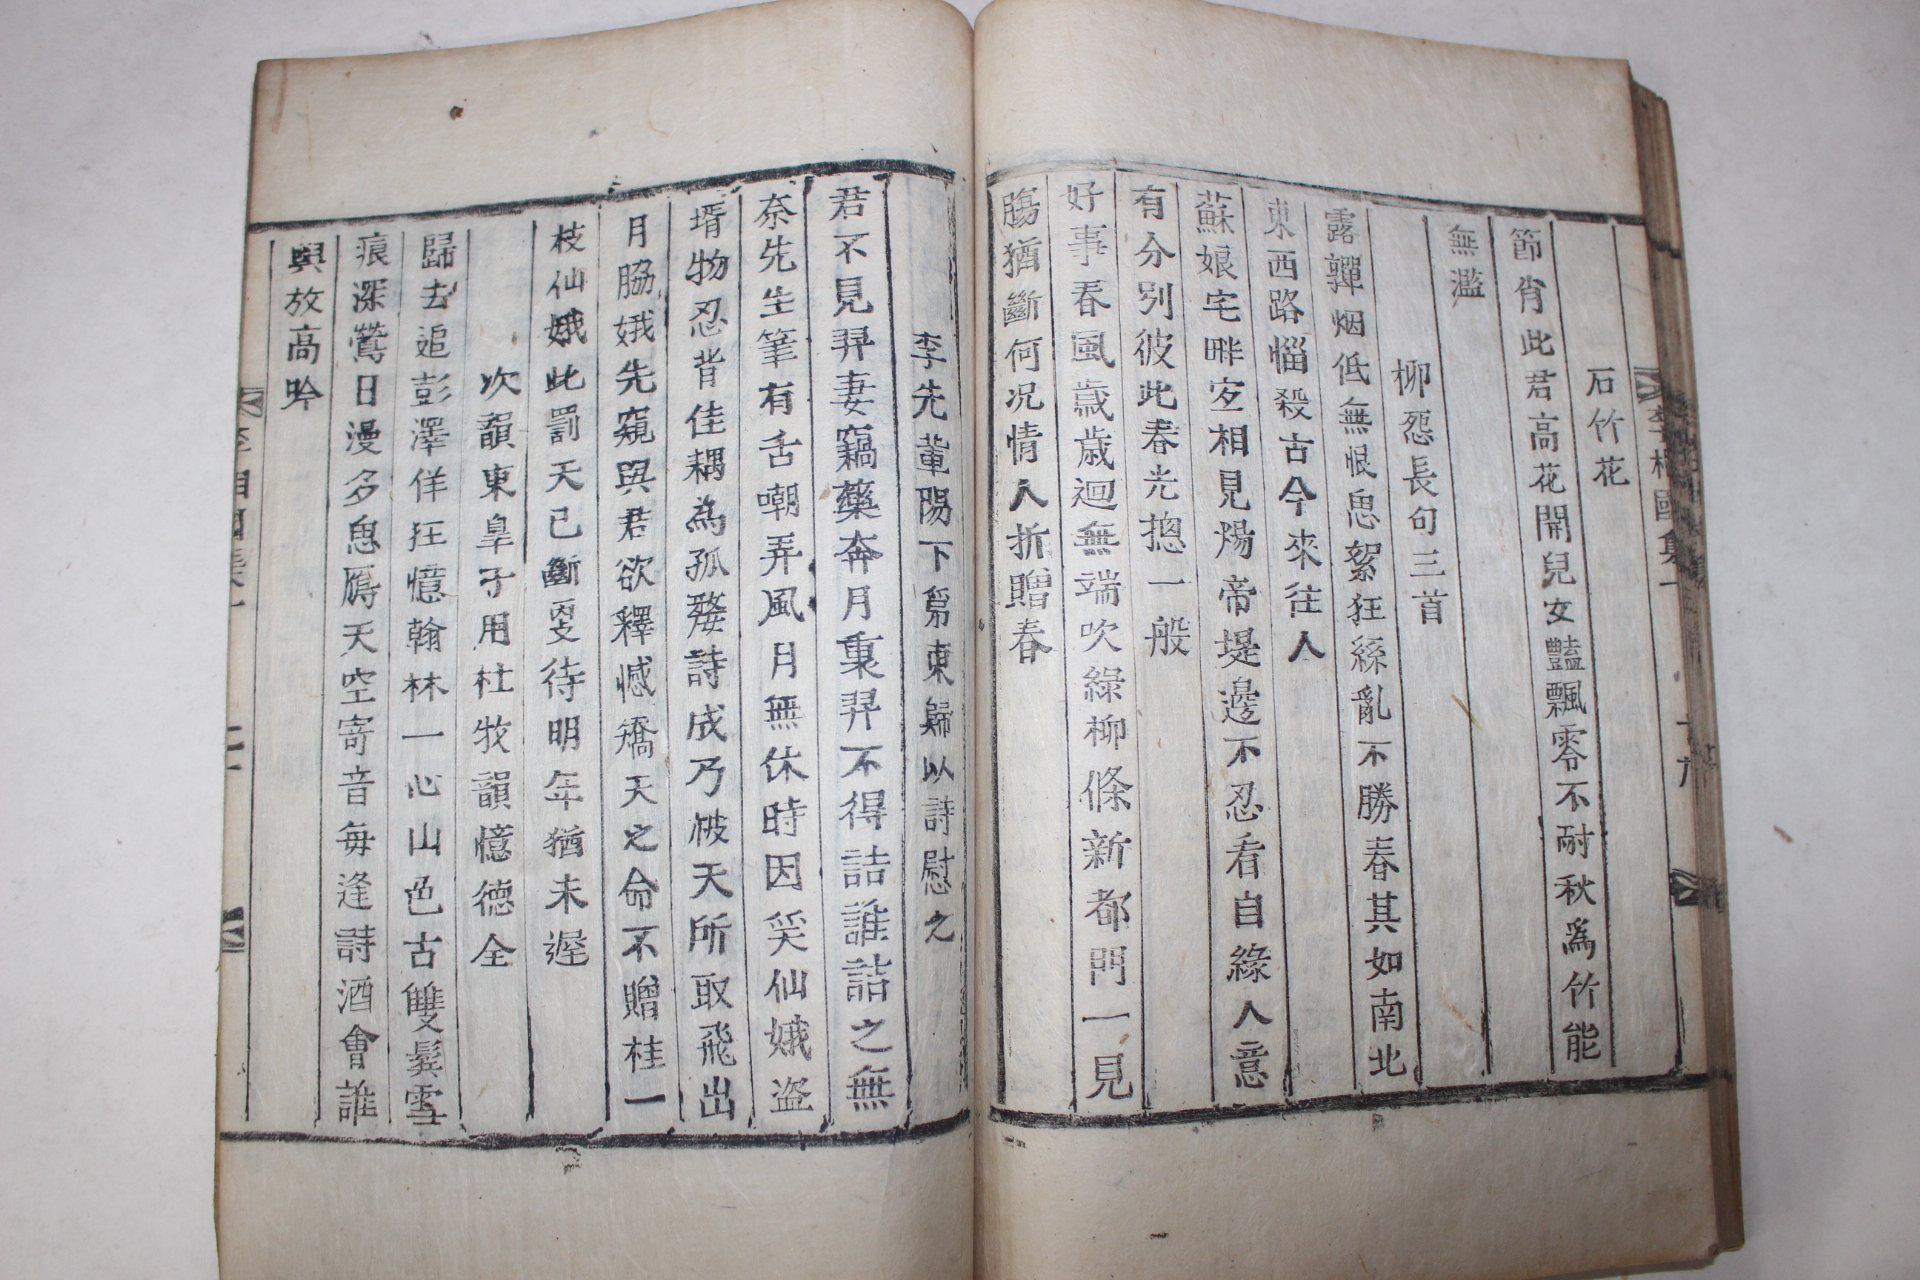 石竹花
節肖此君高花開兒女豔飄零不耐秋爲竹能
無濫
柳怨長句三首
露嚲烟低無恨思絮狂絲亂不勝春其如南北
東西路惱殺古今來往人
蘇娘宅畔空相見煬帝堤邊不忍看自緣人意
有分別彼此春光摠一般
好事春風歲歲迴無端吹綠柳條新都門一見
腸猶斷何况情人折贈春
李先輩陽下第東歸以詩慰之
君不見羿妻竊藥奔月裏羿不得詰誰詰之無
奈先生筆有舌嘲弄風月無休時因笑仙娥盗
壻物忍背佳耦為孤嫠詩成乃被天所取飛出
月脇娥先窺與君欲釋憾矯天之命不贈桂一
枝仙娥此罰天已斷更待明年猶未遲
次韻東皐子用杜牧韻憶德全
歸去追彭澤佯狂憶翰林一心山色古雙鬂雪
痕深鶯日漫多思鴈天空寄音每逢詩酒會誰
與放高吟
李相國集